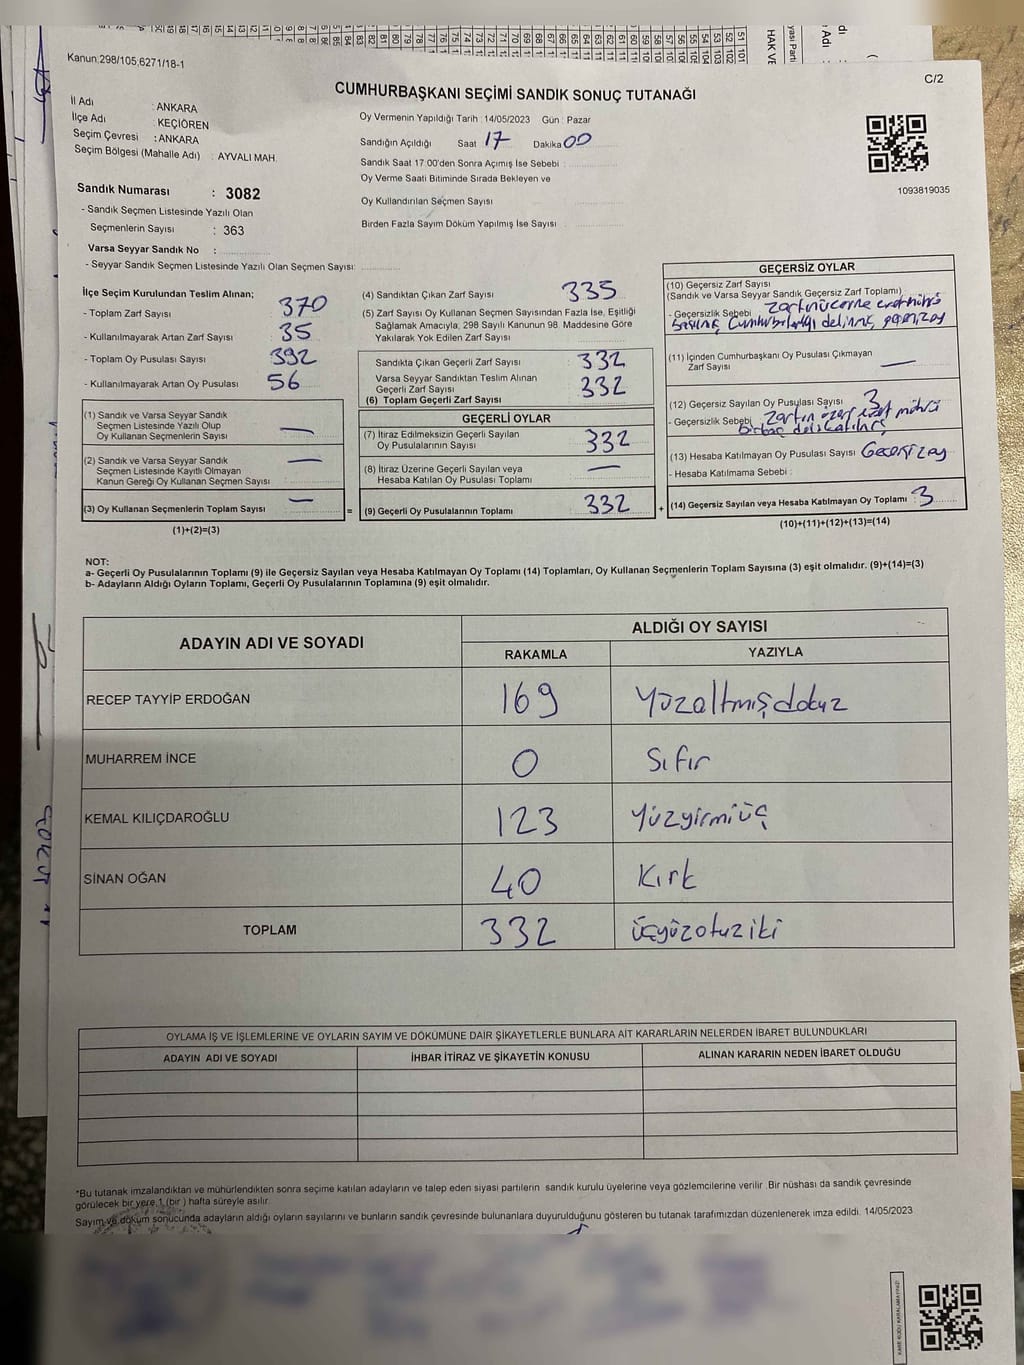 Kanun:298/105,6271/18-1
C/2
CUMHURBAŞKANI SEÇİMİ SANDIK SONUÇ TUTANAĞI
İl Adı : ANKARA
İlçe Adı : KEÇİÖREN
Seçim Çevresi : ANKARA
Seçim Bölgesi (Mahalle Adı) : AYVALI MAH.
Sandık Numarası : 3082
- Sandık Seçmen Listesinde Yazılı Olan
Seçmenlerin Sayısı : 363
Varsa Seyyar Sandık No :
- Seyyar Sandık Seçmen Listesinde Yazılı Olan Seçmen Sayısı:
Oy Vermenin Yapıldığı Tarih : 14/05/2023 Gün : Pazar
Sandığın Açıldığı Saat 17 Dakika 00
Sandık Saat 17:00'den Sonra Açımış İse Sebebi :
Oy Verme Saati Bitiminde Sırada Bekleyen ve
Oy Kullandırılan Seçmen Sayısı
Birden Fazla Sayım Döküm Yapılmış İse Sayısı :
1093819035
İlçe Seçim Kurulundan Teslim Alınan;
- Toplam Zarf Sayısı 370
- Kullanılmayarak Artan Zarf Sayısı 35
- Toplam Oy Pusulası Sayısı 392
- Kullanılmayarak Artan Oy Pusulası 56
(1) Sandık ve Varsa Seyyar Sandık
Seçmen Listesinde Yazılı Olup
Oy Kullanan Seçmenlerin Sayısı —
(2) Sandık ve Varsa Seyyar Sandık
Seçmen Listesinde Kayıtlı Olmayan
Kanun Gereği Oy Kullanan Seçmen Sayısı —
(3) Oy Kullanan Seçmenlerin Toplam Sayısı —
(1)+(2)=(3)
=
(4) Sandıktan Çıkan Zarf Sayısı 335
(5) Zarf Sayısı Oy Kullanan Seçmen Sayısından Fazla İse, Eşitliği
Sağlamak Amacıyla, 298 Sayılı Kanunun 98. Maddesine Göre
Yakılarak Yok Edilen Zarf Sayısı
Sandıkta Çıkan Geçerli Zarf Sayısı 332
Varsa Seyyar Sandıktan Teslim Alınan
Geçerli Zarf Sayısı 332
(6) Toplam Geçerli Zarf Sayısı
GEÇERLİ OYLAR
(7) İtiraz Edilmeksizin Geçerli Sayılan
Oy Pusulasının Sayısı 332
(8) İtiraz Üzerine Geçerli Sayılan veya
Hesaba Katılan Oy Pusulası Toplamı —
(9) Geçerli Oy Pusulalarının Toplamı 332
+
GEÇERSİZ OYLAR
(10) Geçersiz Zarf Sayısı
(Sandık ve Varsa Seyyar Sandık Geçersiz Zarf Toplamı)
- Geçersizlik Sebebi
(11) İçinden Cumhurbaşkanı Oy Pusulası Çıkmayan
Zarf Sayısı —
(12) Geçersiz Sayılan Oy Pusulası Sayısı 3
- Geçersizlik Sebebi
(13) Hesaba Katılmayan Oy Pusulası Sayısı
- Hesaba Katılmama Sebebi :
(14) Geçersiz Sayılan veya Hesaba Katılmayan Oy Toplamı 3
(10)+(11)+(12)+(13)=(14)
NOT:
a- Geçerli Oy Pusulalarının Toplamı (9) ile Geçersiz Sayılan veya Hesaba Katılmayan Oy Toplamı (14) Toplamları, Oy Kullanan Seçmenlerin Toplam Sayısına (3) eşit olmalıdır. (9)+(14)=(3)
b- Adayların Aldığı Oyların Toplamı, Geçerli Oy Pusulalarının Toplamına (9) eşit olmalıdır.
ADAYIN ADI VE SOYADI ALDIĞI OY SAYISI
RAKAMLA YAZIYLA
RECEP TAYYİP ERDOĞAN 169 Yüzaltmışdokuz
MUHARREM İNCE 0 Sıfır
KEMAL KILIÇDAROĞLU 123 Yüzyirmiüç
SİNAN OĞAN 40 Kırk
TOPLAM 332 üçyüzotuziki
OYLAMA İŞ VE İŞLEMLERİNE VE OYLARIN SAYIM VE DÖKÜMÜNE DAİR ŞİKAYETLERLE BUNLARA AİT KARARLARIN NELERDEN İBARET BULUNDUKLARI
ADAYIN ADI VE SOYADI İHBAR İTİRAZ VE ŞİKAYETİN KONUSU ALINAN KARARIN NEDEN İBARET OLDUĞU
*Bu tutanak imzalandıktan ve mühürlendikten sonra seçime katılan adayların ve talep eden siyasi partilerin sandık kurulu üyelerine veya gözlemcilerine verilir .Bir nüshası da sandık çevresinde
görülecek bir yere 1 (bir ) hafta süreyle asılır.
Sayım ve döküm sonucunda adayların aldığı oyların sayılarını ve bunların sandık çevresinde bulunanlara duyurulduğunu gösteren bu tutanak tarafımızdan düzenlenerek imza edildi. 14/05/2023